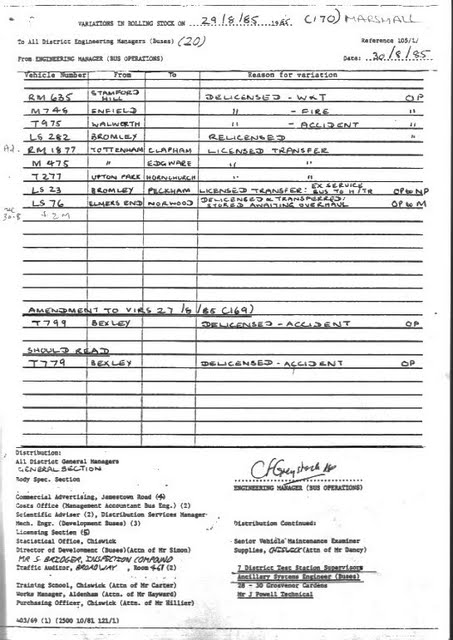 VARIATIONS IN ROLLING STOCK ON 29/8/85 1985 (170) MARSHALL
To All District Engineering Managers (Buses) (20) Reference 105/1/
From ENGINEERING MANAGER (BUS OPERATIONS) Date: 30/8/85
Vehicle Number From To Reason for variation
RM 635 STAMFORD HILL DELICENSED - WKT OP
M 746 ENFIELD " - FIRE "
T 975 WALWORTH " - ACCIDENT "
LS 282 BROMLEY RELICENSED "
RM 1877 TOTTENHAM CLAPHAM LICENSED TRANSFER
M 475 " EDGWARE " "
T 277 UPTON PARK HORNCHURCH " "
LS 23 BROMLEY PECKHAM LICENSED TRANSFER: EX SERVICE BUS TO H/TR OP to NP
LS 76 ELMERS END NORWOOD DELICENSED & TRANSFERRED: STORED AWAITING OVERHAUL OP to M
AMENDMENT TO VIRS 27/8/85 (169)
T 799 BEXLEY DELICENSED - ACCIDENT OP
SHOULD READ
T 779 BEXLEY DELICENSED - ACCIDENT OP
Distribution:
All District General Managers
GENERAL SECTION
Body Spec. Section
ENGINEERING MANAGER (BUS OPERATIONS)
Commercial Advertising, Jamestown Road
Costs Office (Management Accountant Bus Eng.) (2)
Scientific Adviser (2), Distribution Services Manager
Mech. Engr. (Development Buses) (3) Distribution Continued:
Licensing Section
Statistical Office, Chiswick Senior Vehicle Maintenance Examiner
Director of Development (Buses)(Attn of Mr Simon) Supplies, CHISWICK (Attn of Mr Dancy)
MR S BRIDGER, INSPECTION COMPOUND
Traffic Auditor, BROADWAY, Room (2) 7 District Test Station Supervisors
Ancillary Systems Engineer (Buses)
Training School, Chiswick (Attn of Mr Carter) 28 - 30 Grosvenor Gardens
Works Manager, Aldenham (Attn of Mr Hayward) Mr J Powell Technical
Purchasing Officer, Chiswick (Attn of Mr Hillier)
403/69 (1) (2500 10/81 121/1)